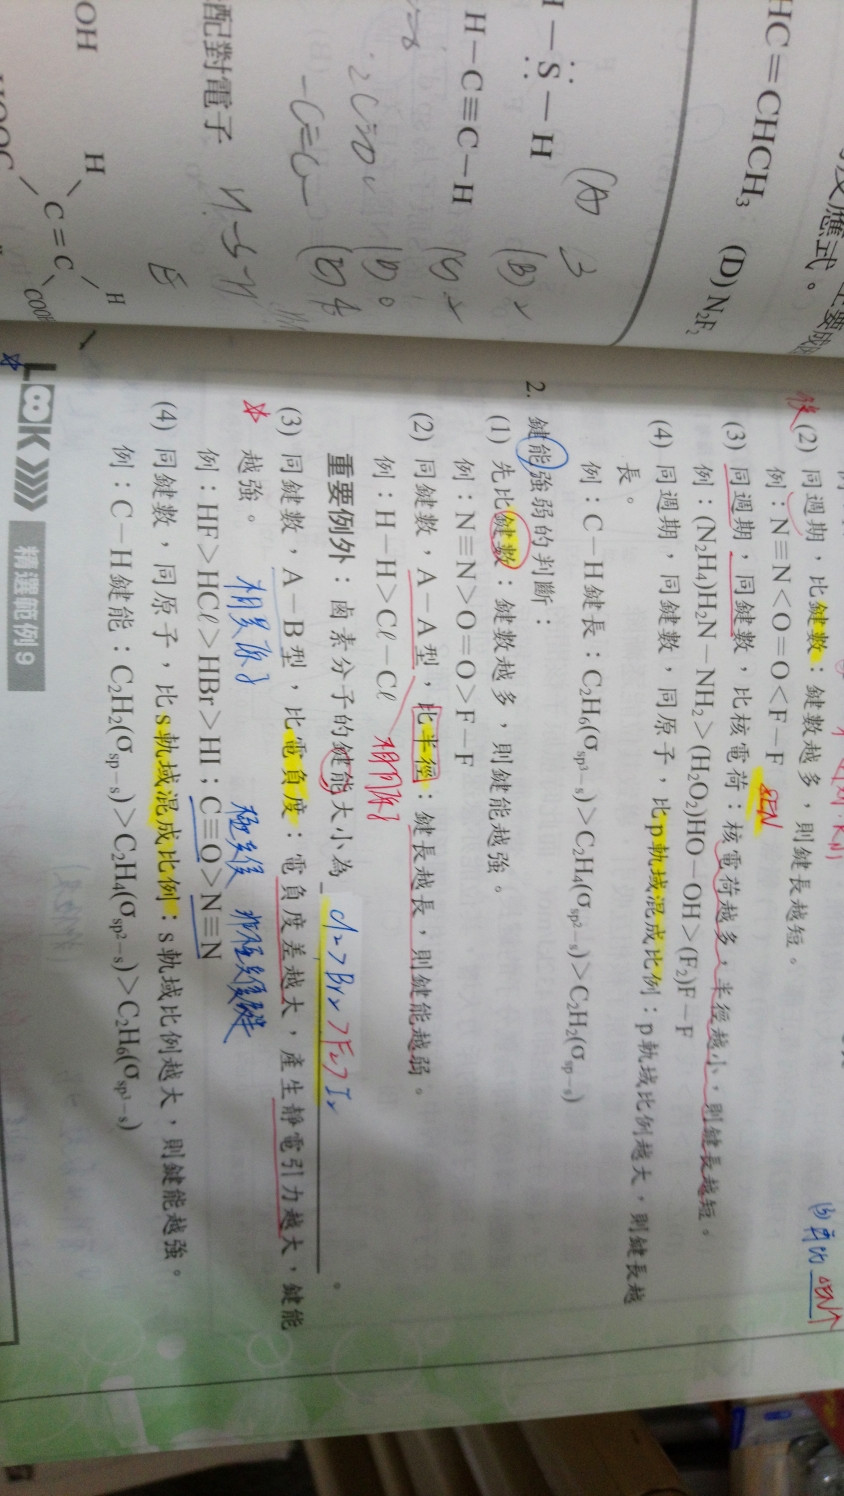 及應式。
HC=CHCH₃ (D) N₂F₂
H－S－H
(A) 3
(B) 2
H－C≡C－H
配對電子
H－S－H
E
OH
H
H
C＝C
COOH
HOOC
(3) 再比 ΔEN↑
(2) 同週期，比鍵數：鍵數越多，則鍵長越短。
例：N≡N＜O＝O＜F－F
ΔEN
(3) 同週期，同鍵數，比核電荷：核電荷越多、半徑越小，則鍵長越短。
例：(N₂H₄)H₂N－NH₂＞(H₂O₂)HO－OH＞(F₂)F－F
(4) 同週期，同鍵數，同原子，比p軌域混成比例：p軌域比例越大，則鍵長越
長。
例：C－H鍵長：C₂H₆(σsp³－s)＞C₂H₄(σsp²－s)＞C₂H₂(σsp－s)
2. 鍵能強弱的判斷：
(1) 先比鍵數：鍵數越多，則鍵能越強。
例：N≡N＞O＝O＞F－F
(2) 同鍵數，A－A型，比半徑：鍵長越長，則鍵能越弱。
例：H－H＞Cℓ－Cℓ 相同原子
重要例外：鹵素分子的鍵能大小為 Cl₂＞Br₂＞F₂＞I₂。
(3) 同鍵數，A－B型，比電負度：電負度差越大，產生靜電引力越大，鍵能
越強。 相異原子
例：HF＞HCℓ＞HBr＞HI；C≡O＞N≡N
極性鍵 非極性鍵
(4) 同鍵數，同原子，比s軌域混成比例：s軌域比例越大，則鍵能越強。
例：C－H鍵能：C₂H₂(σsp－s)＞C₂H₄(σsp²－s)＞C₂H₆(σsp³－s)
LOOK 精選範例9